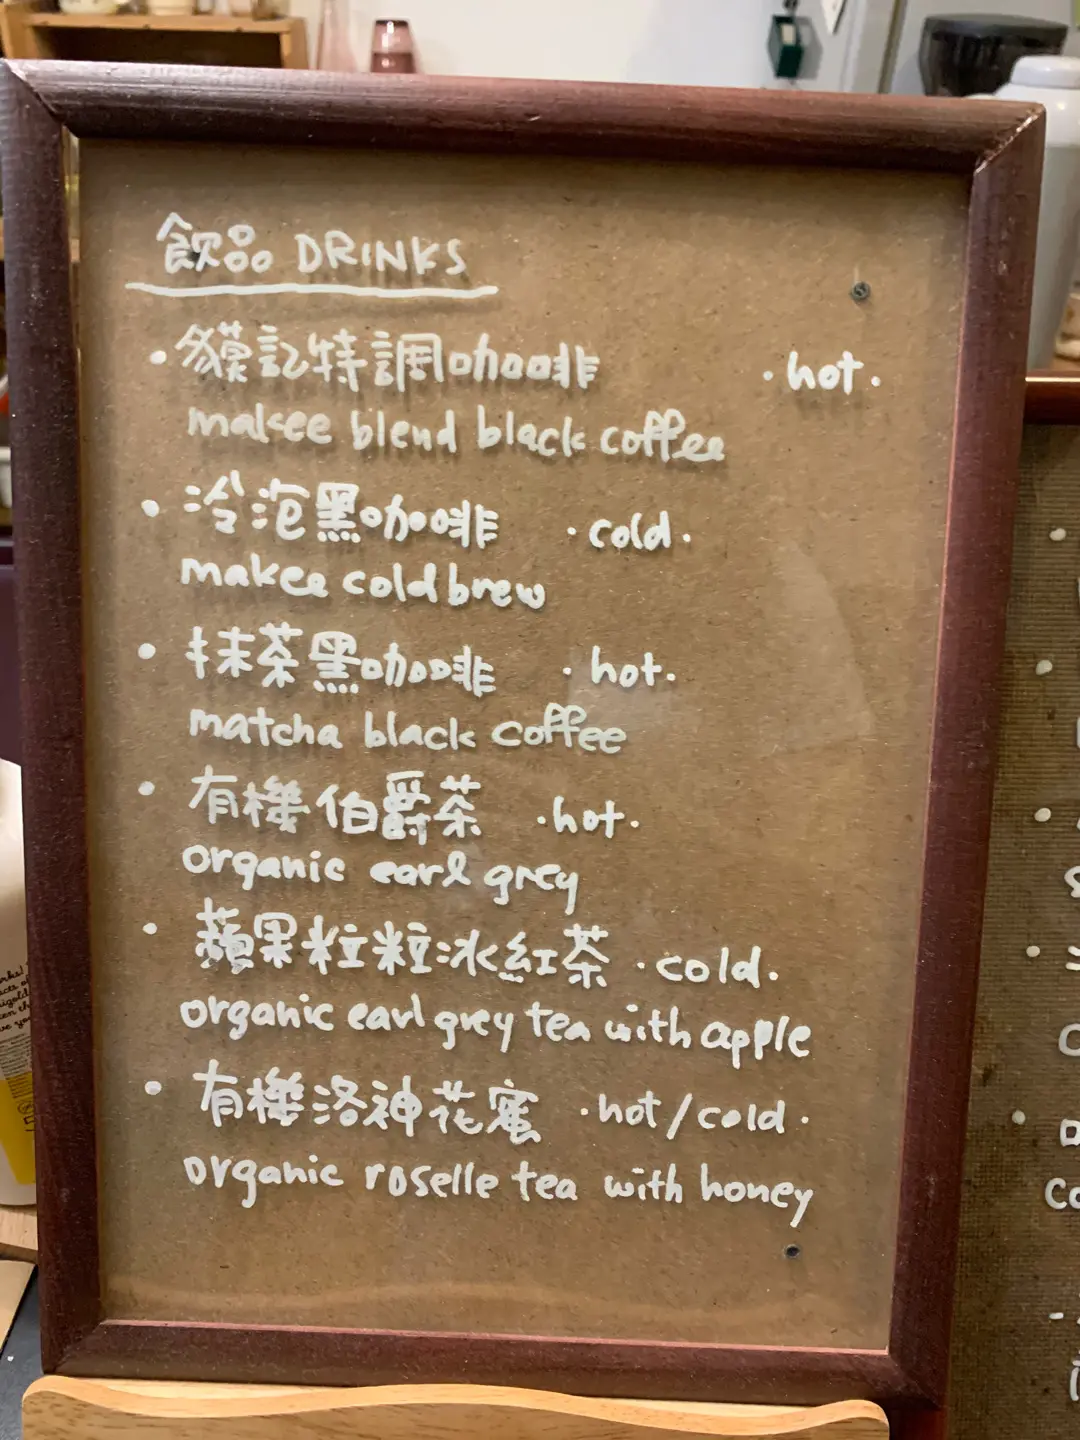 飲品 DRINKS
• 貘記特調咖啡 • hot •
makee blend black coffee
• 冷泡黑咖啡 • cold •
makee cold brew
• 抹茶黑咖啡 • hot •
matcha black coffee
• 有機伯爵茶 • hot •
organic earl grey
• 蘋果粒粒冰紅茶 • cold •
organic earl grey tea with apple
• 有機洛神花蜜 • hot/cold •
organic roselle tea with honey